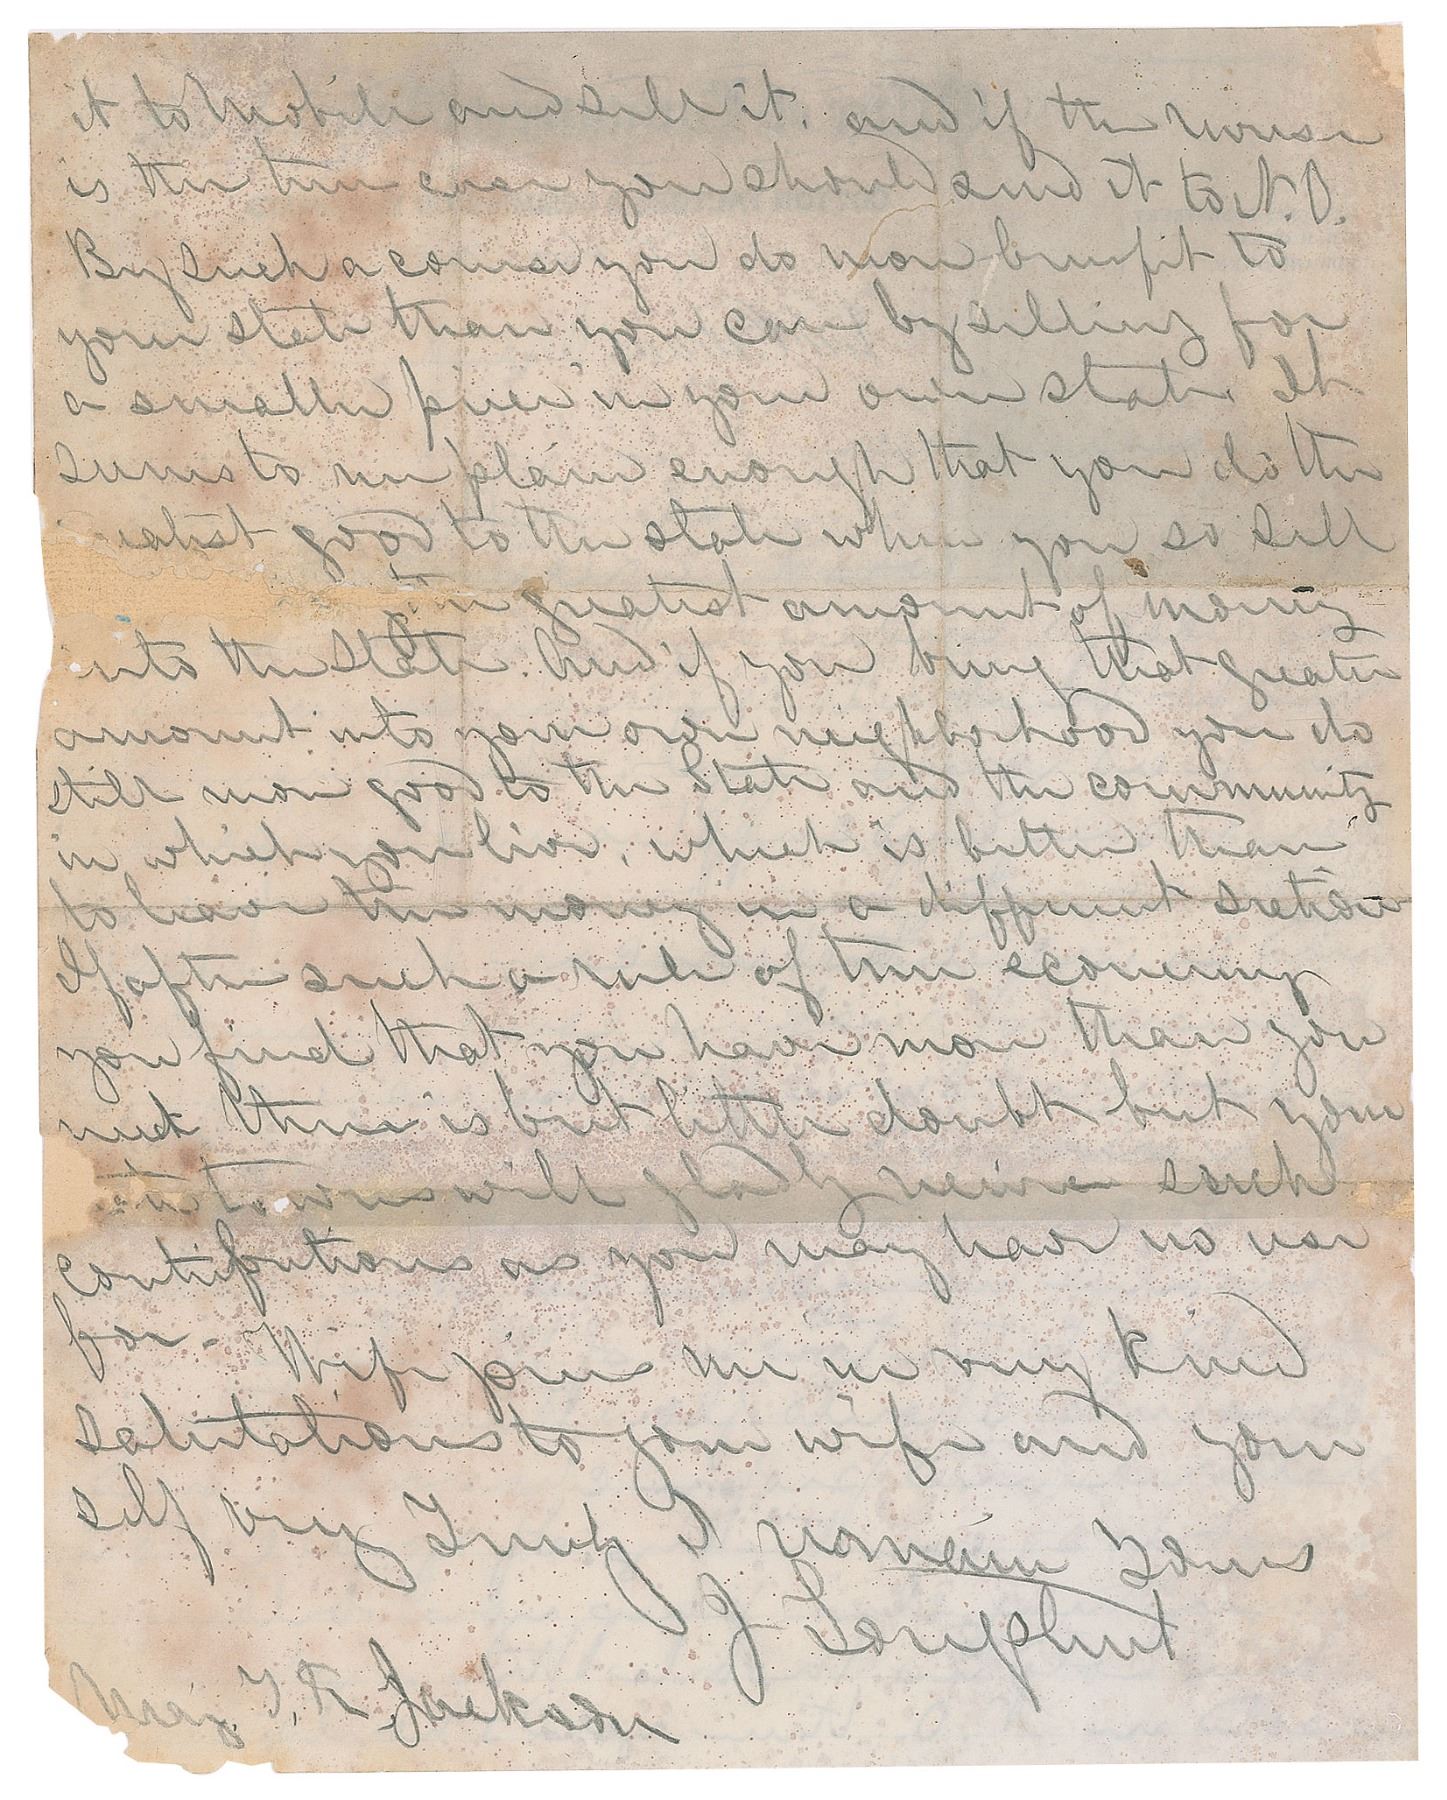 it to Mobile and sell it. and if the reverse
is the true case you should send it to N.O.
By such a course you do more benefit to
your state than you can by selling for
a smaller price in your own state. It
seems to me plain enough that you do the
good to the state when you so sell
the greatest amount of money
into the State. And if you bring that greater
amount into your own neighborhood you do
still more good to the State and the community
in which you live, which is better than
to leave the money in a different section
If after such a rule of true economy
you find that you have more than you
need there is but little doubt but your
towns will gladly receive such
contributions as you may have no use
for - Wife joins me in very kind
salutations to your wife and your
self very Truly I remain Yours
J Longstreet
Maj. T. R. Jackson